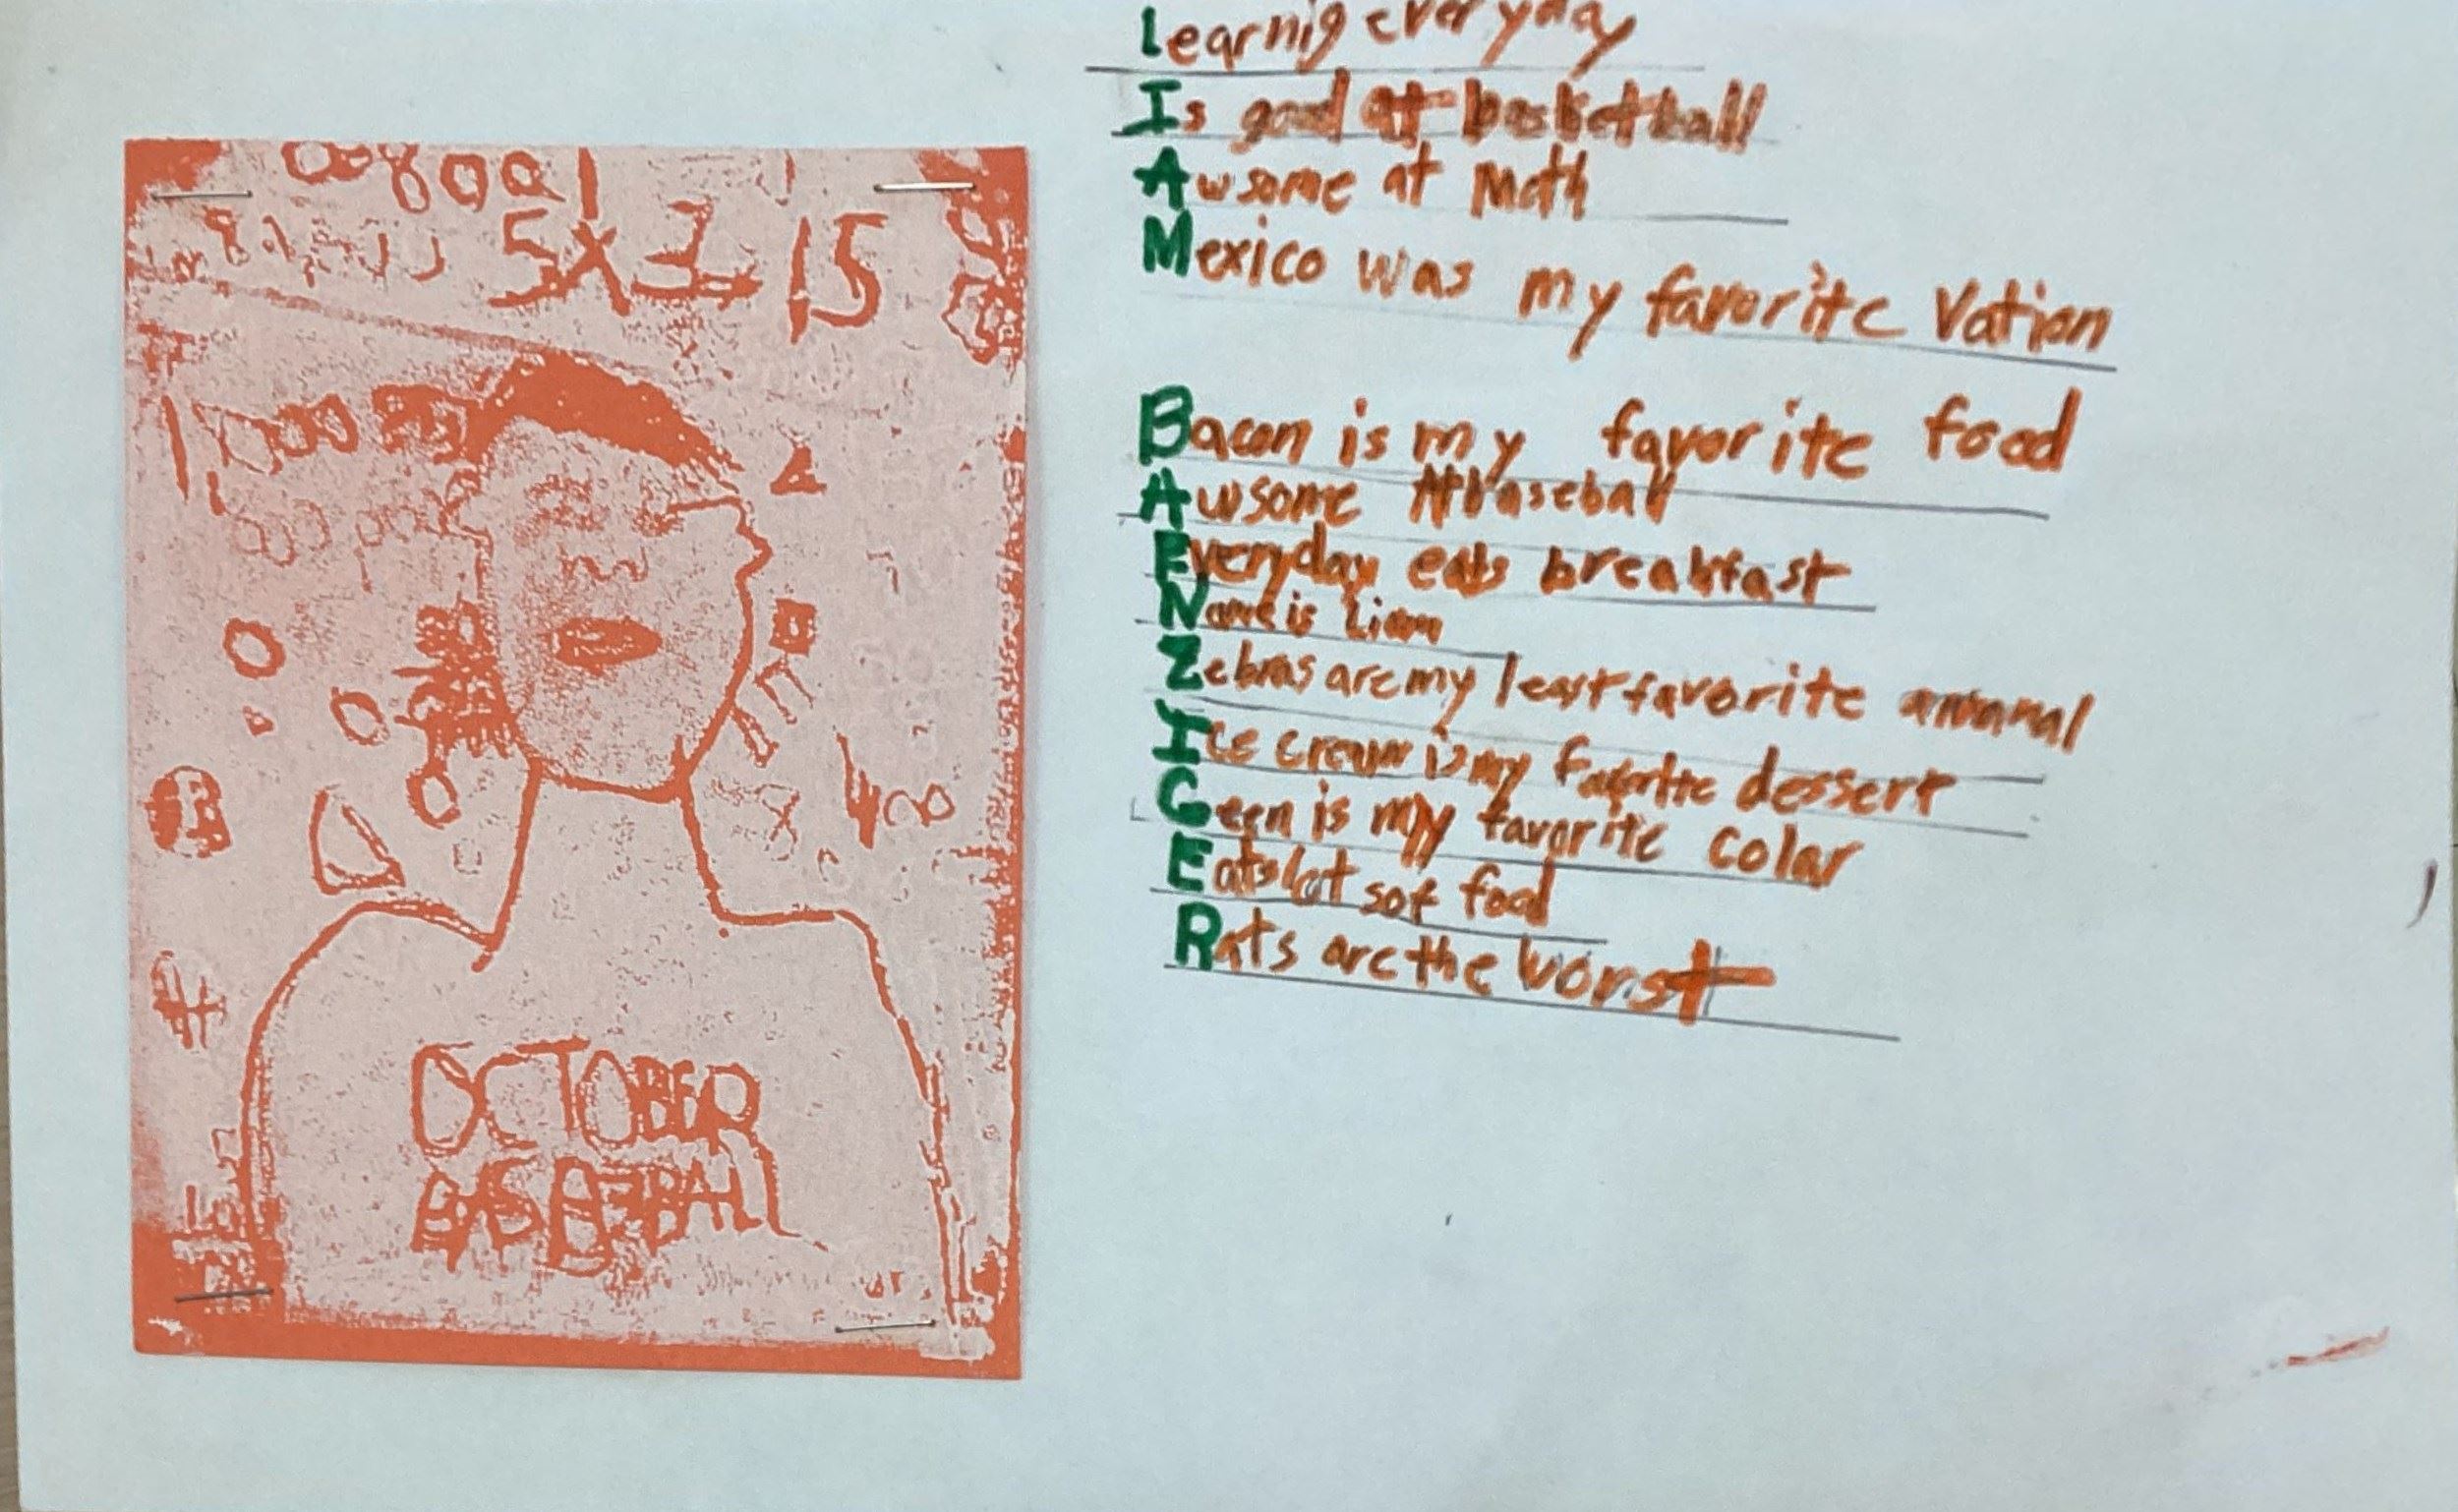 5x3 15
OCTOBER
BASEBALL
Learnig everyday
Is good at basketball
Awsome at Math
Mexico was my favorite Vation
Bacon is my favorite food
Awsome At baseball
Everyday eats breakfast
Name is Liam
Zebras are my least favorite
Ice cream is my favorite dessert
Geen is my favorite colar
Eats lot sof food
Rats are the worst